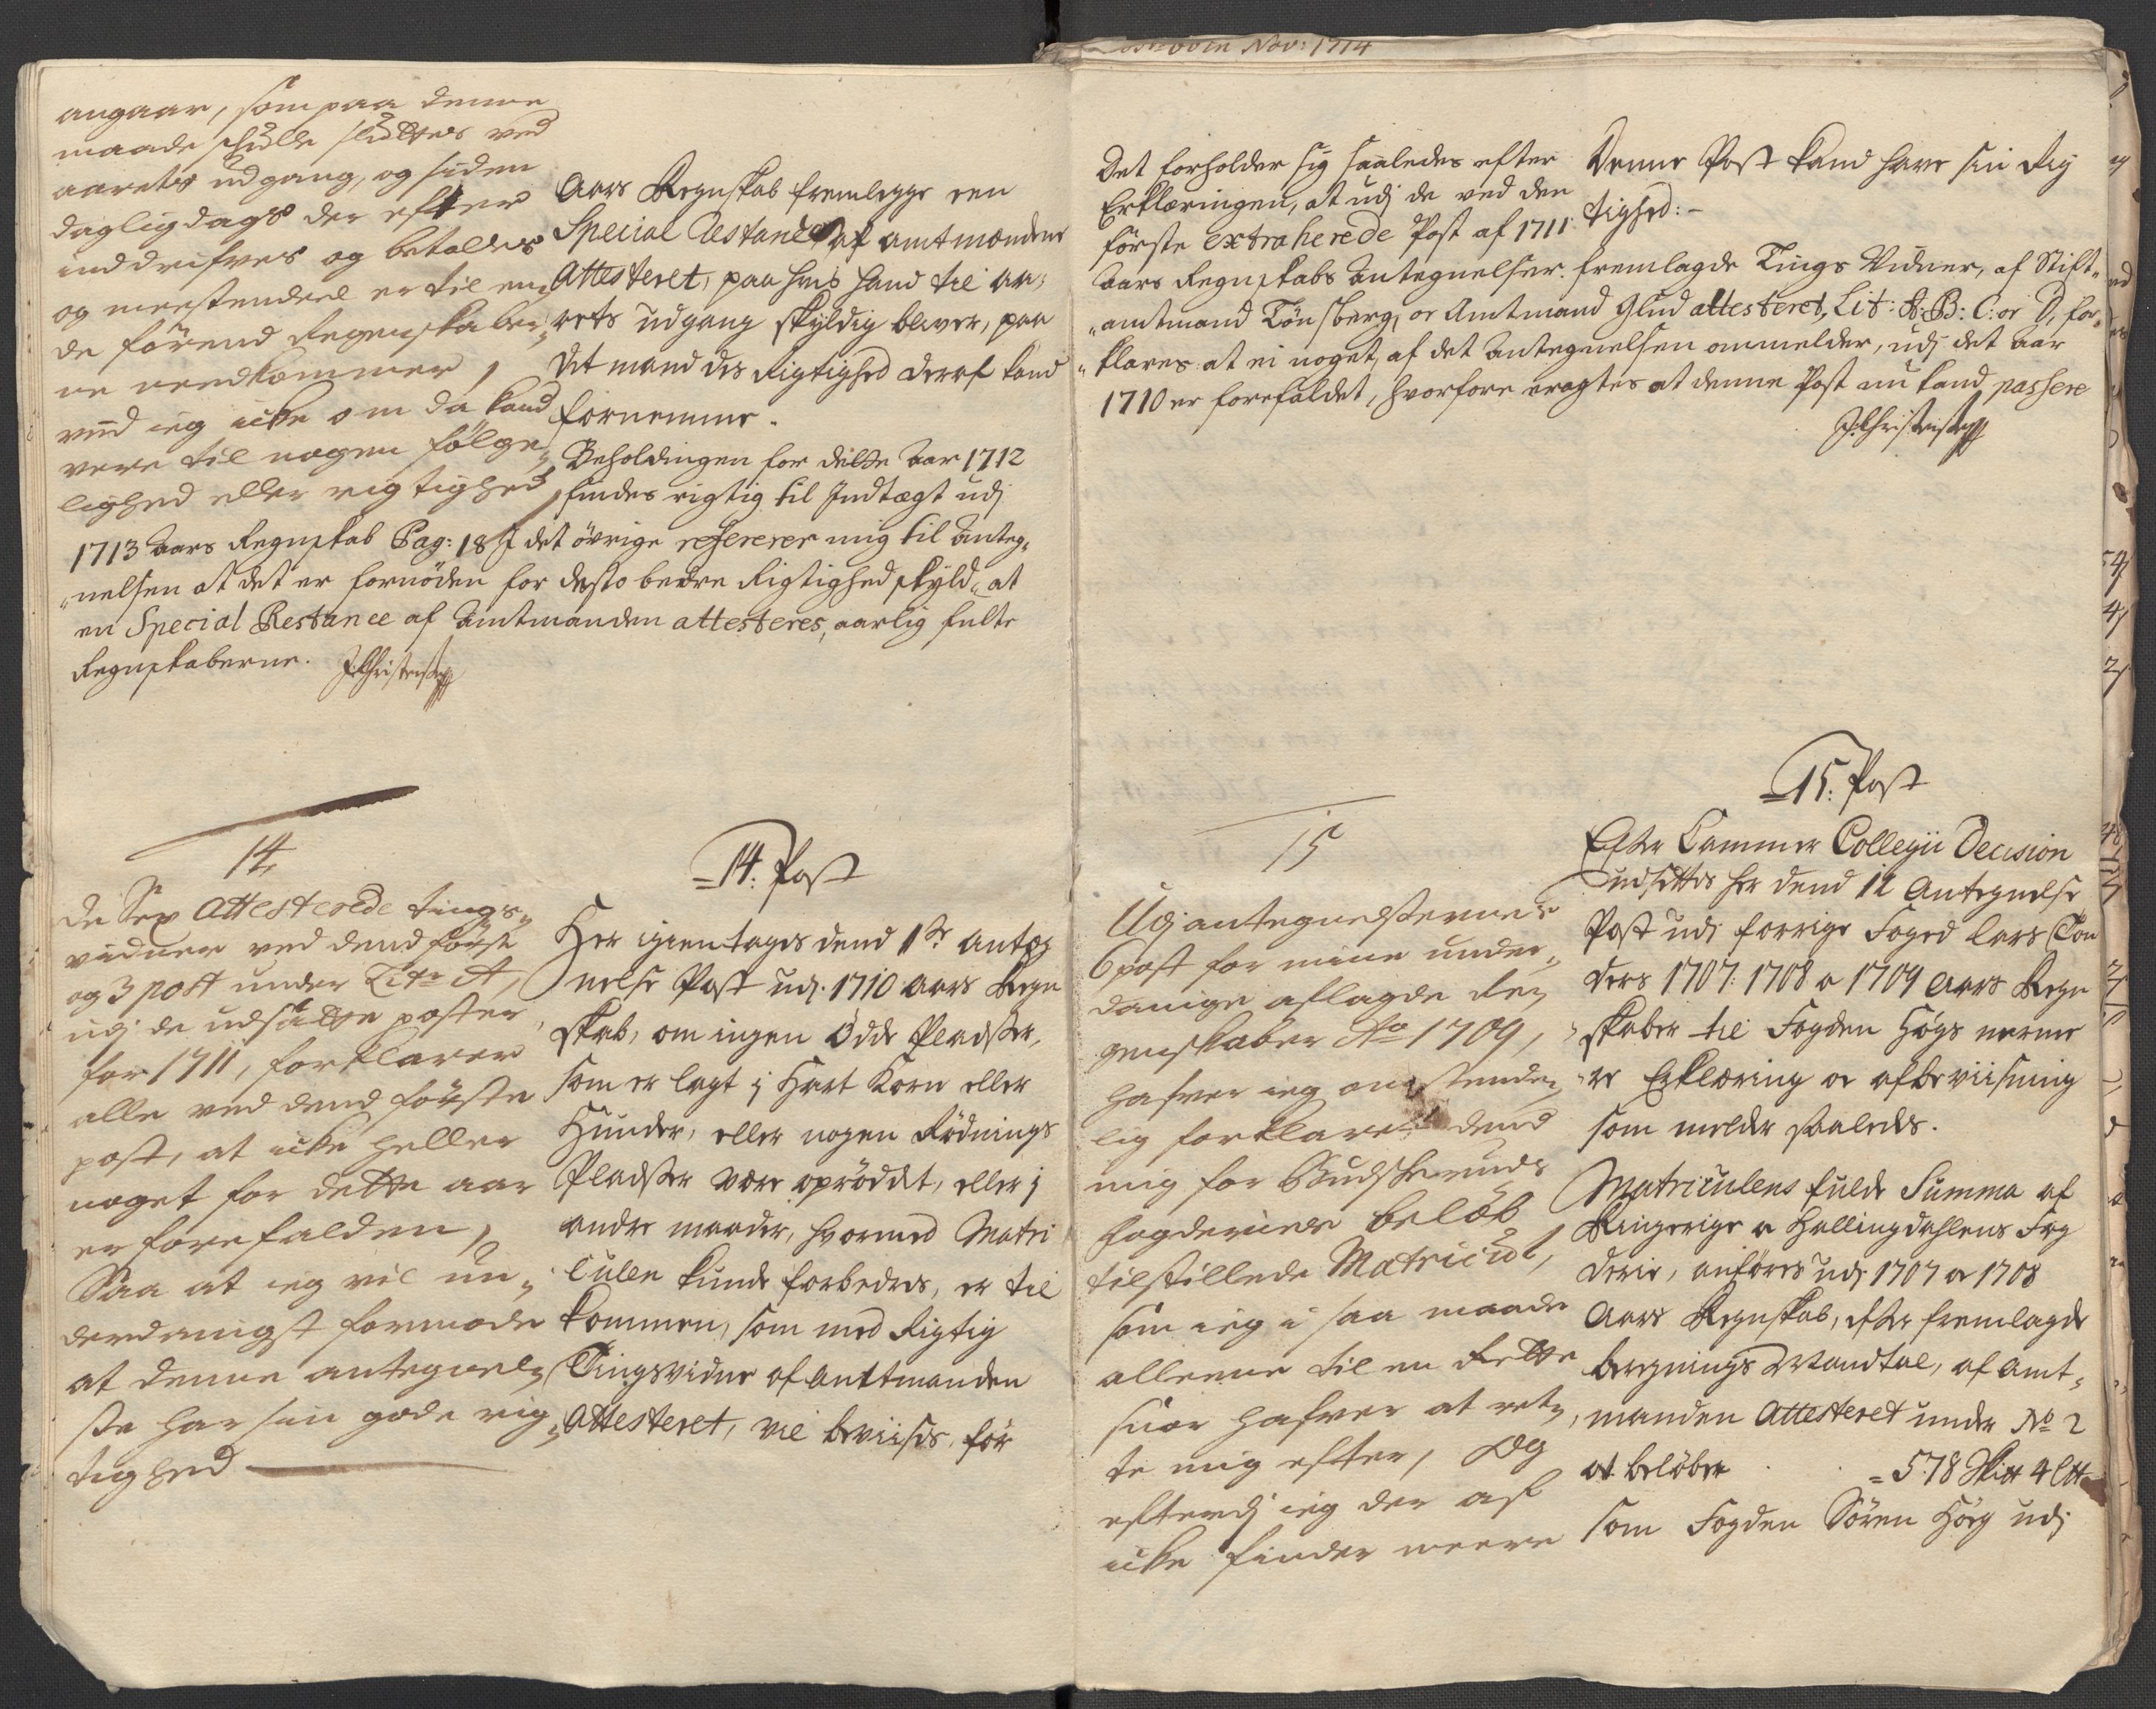 angaar, som paa denne
maade skulle sluttes ved
aarets udgang, og siden
dagligdags der efter
inddrifves og betalles
og meestendeel er til en-
de förend Regenskaber-
ne needkommer,
veed ieg icke om da kand
vere til nogen følge-
lighed eller rigtighed,
Aars Regnskab fremlegge een
Special Restance af amtmanden
Attesteret, paa hvis hand til aa-
rets udgang skyldig bliver, paa
det mand des Rigtighed deraf kand
fornemme.
Beholdingen for dette Aar 1712
findes rigtig til Indtægt udj
1713 Aars Regnskab Pag: 18 J det øvrige refererer mig til Anteg-
nelsen at det er fornöden for desto bedre Rigtighed skyld, at
en Special Restance af Amtmanden attesteres, aarlig fulte
Regnskaberne.
14,
De Sex Attesterede tings-
vidner ved dend förste
og 3 post under Litr A,
udj de udsatte poster
for 1711, forklarer
alle ved dend förste
post, at icke heller
noget for dette aar
er forefalden,
Saa at ieg vil un-
derdanigst formode
at denne antegnel-
sse har sin gode rig-
tighed
14: Post
Her igientages dend 1ste Anteg
nelse Post udj 1710 Aars Regn
skab, om ingen Ödde Pladsser,
som er lagt j Hart Korn eller
Hunder, eller nogen Rödnings
Pladsser være oprøddet, eller j
andre maader, hvormed Matri
culen kunde forbedres, er til
kommen, som med Rigtig
Tingsvidne af Amtmanden
Attesteret, vil beviises, för
Nov: 1714
Det forholder sig saaledes efter
Erklæringen, at udj de ved den
förste extraherede Post af 1711
Denne Post kand have sin Rig
tighed:-
Aars Regnskabs Antegnelser fremlagde Tings Vidner, af Stift-
amtmand Tönsberg, oc Amtmand Glud attesteret, Lit: A: B: C: oc D, for-
klares at ei noget, af det Antegnelsen ommelder, udj det Aar
1710 er forefaldet, hvorfore eragtes at denne Post nu kand passere
15
Udj antegnelsserne
6 post for mine under-
danige aflagde Re-
genskaber Ao 1709,
hafver ieg omstende-
lig forklaret dend
mig for Budsкeruds
fogderie beløb
tilstillede Matricul,
som ieg i saa maade
alleene til en Rette
snor hafver at ret-
te mig efter, Og
efterdj ieg der af
icke finder meere
15: Post
Efter Cammer Collegii Decision
udsettes her dend 12 Antegnelse
Post udj forrige Foged Lars Ton
ders 1707: 1708 oc 1709 Aars Regn
skaber til Fogden Högs nerme
re Erklæring oc afbeviisning
som melder saaledes.
Matriculens fulde Summa af
Ringerige oc Hallingdahlens Fog
derie, anföres udj 1707 oc 1708
Aars Regnskab, efter fremlagde
beregnings Mandtal, af Amt-
manden Attesteret under No 2
at beløbe = 578
som Fogden Sören Hög udj